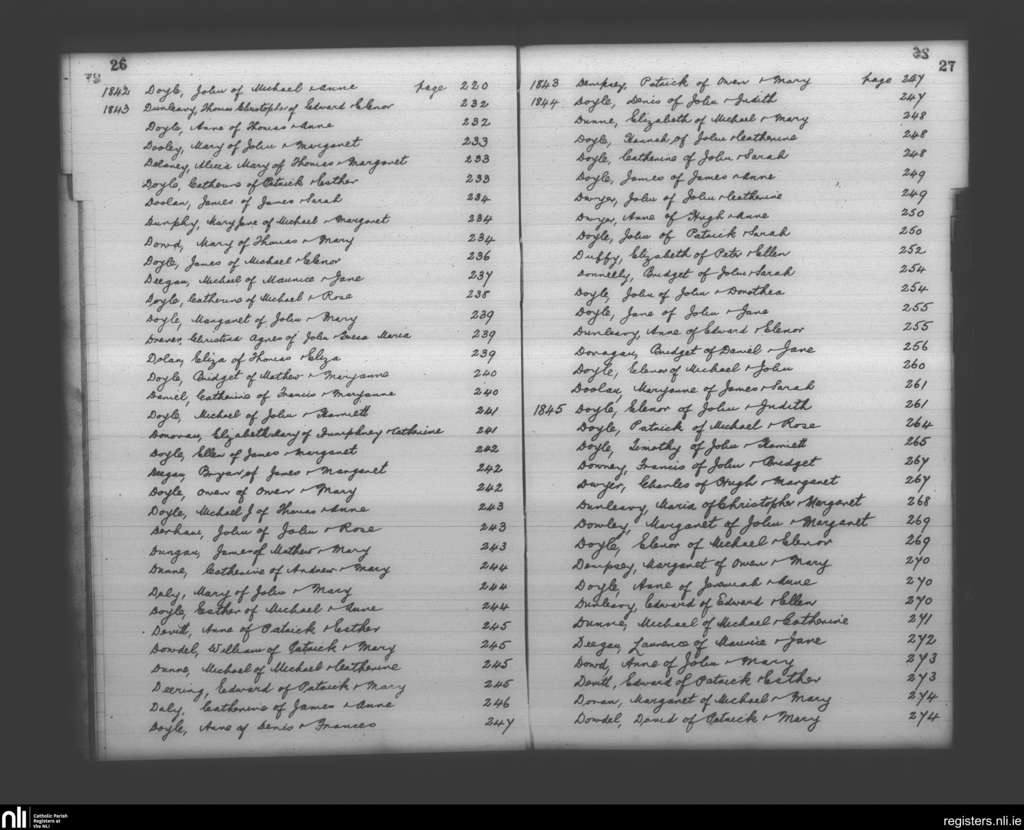 26
1842 Doyle, John of Michael & Anne page 220
1843 Dunleavy, Thomas Christopher of Edward & Elenor 232
Doyle, Anne of Thomas & Anne 232
Dooley, Mary of John & Margaret 233
Delaney, Alicia Mary of Thomas & Margaret 233
Doyle, Catherine of Patrick & Esther 233
Doolan, James of James & Sarah 234
Dunphy, Mary Jane of Michael & Margaret 234
Dowd, Mary of Thomas & Mary 234
Doyle, James of Michael & Elenor 236
Deegan, Michael of Maurice & Jane 237
Doyle, Catherine of Michael & Rose 238
Doyle, Margaret of John & Mary 239
Christina Agnes of John & Maria 239
Dolan, Eliza of Thomas & Eliza 239
Doyle, Bridget of Mathew & Maryanne 240
Daniel, Catherine of Francis & Maryanne 240
Doyle, Michael of John & Harriett 241
Donovan, Elizabeth Mary of Humphrey & Catherine 241
Doyle, Ellen of James & Margaret 242
Deegan, Bryan of James & Margaret 242
Doyle, Owen of Owen & Mary 242
Doyle, Michael J of Thomas & Anne 243
Derhan, John of John & Rose 243
Dungan, James of Mathew & Mary 243
Dunne, Catherine of Andrew & Mary 244
Daly, Mary of John & Mary 244
Doyle, Esther of Michael & Anne 244
Devitt, Anne of Patrick & Esther 245
Dowdel, William of Patrick & Mary 245
Dunne, Michael of Michael & Catherine 245
Deering, Edward of Patrick & Mary 245
Daly, Catherine of James & Anne 246
Doyle, Anne of Denis & Frances 247
27
1843 Dempsey, Patrick of Owen & Mary page 247
1844 Doyle, Denis of John & Judith 247
Dunne, Elizabeth of Michael & Mary 248
Doyle, Hannah of John & Catherine 248
Doyle, Catherine of John & Sarah 248
Doyle, James of James & Anne 249
Dwyer, John of John & Catherine 249
Dwyer, Anne of Hugh & Anne 250
Doyle, John of Patrick & Sarah 250
Duffy, Elizabeth of Peter & Ellen 252
Donnelly, Bridget of John & Sarah 254
Doyle, John of John & Dorothea 254
Doyle, Jane of John & Jane 255
Dunleavy, Anne of Edward & Elenor 255
Donagan, Bridget of Daniel & Jane 256
Doyle, Elenor of Michael & John 260
Doolan, Maryanne of James & Sarah 261
1845 Doyle, Elenor of John & Judith 261
Doyle, Patrick of Michael & Rose 264
Doyle, Timothy of John & Harriett 265
Downey, Francis of John & Bridget 267
Dwyer, Charles of Hugh & Margaret 267
Dunleavy, Maria of Christopher & Margaret 268
Dowley, Margaret of John & Margaret 269
Doyle, Elenor of Michael & Elenor 269
Dempsey, Margaret of Owen & Mary 270
Doyle, Anne of Jeremiah & Anne 270
Dunleavy, Edward of Edward & Ellen 270
Dunne, Michael of Michael & Catherine 271
Deegan, Laurence of Maurice & Jane 272
Dowd, Anne of John & Mary 273
Devitt, Edward of Patrick & Esther 273
Doran, Margaret of Michael & Mary 274
Dowdel, David of Patrick & Mary 274
nli Catholic Parish Registers at the NLI
registers.nli.ie